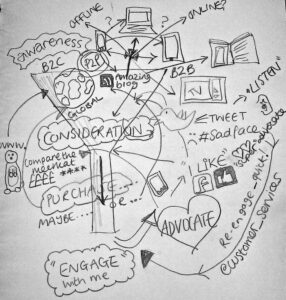 OFFLINE
ONLINE?
awareness
B2C
P2P
B2B
amazing
blog
GLOBAL
"LISTEN"
CONSIDERATION
TWEET
#sadface
WWW.
compare the
meerkat
££££ ****
"LIKE"
PURCHASE...
MAYBE....
ADVOCATE
Re-engage
@customer_services
"ENGAGE"
with me